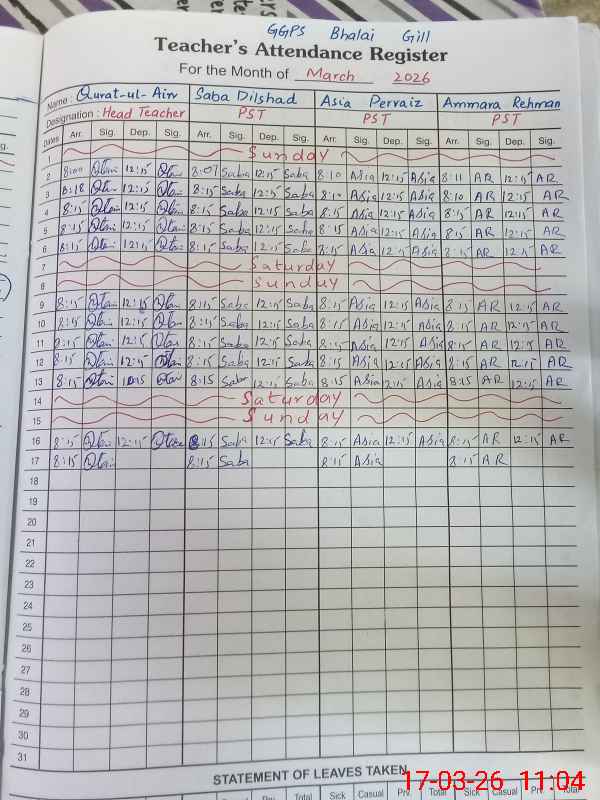 GGPS Bhalai Gill
Teacher's Attendance Register
For the Month of March 2026
Name: Qurat-ul-Ain Saba Dilshad Asia Pervaiz Ammara Rehman
Designation: Head Teacher PST PST PST
Dates Arr. Sig. Dep. Sig. Arr. Sig. Dep. Sig. Arr. Sig. Dep. Sig. Arr. Sig. Dep. Sig.
1 Sunday
2 8:00 12:15 8:07 Saba 12:15 Saba 8:10 Asia 12:15 Asia 8:11 AR 12:15 AR
3 8:18 12:15 8:15 Saba 12:15 Saba 8:10 Asia 12:15 Asia 8:10 AR 12:15 AR
4 8:15 12:15 8:15 Saba 12:15 Saba 8:15 Asia 12:15 Asia 8:15 AR 12:15 AR
5 8:15 12:15 8:15 Saba 12:15 Saba 8:15 Asia 12:15 Asia 8:15 AR 12:15 AR
6 8:15 12:15 8:15 Saba 12:15 Saba 8:15 Asia 12:15 Asia 8:15 AR 12:15 AR
7 Saturday
8 Sunday
9 8:15 12:15 8:15 Saba 12:15 Saba 8:15 Asia 12:15 Asia 8:15 AR 12:15 AR
10 8:15 12:15 8:15 Saba 12:15 Saba 8:15 Asia 12:15 Asia 8:15 AR 12:15 AR
11 8:15 12:15 8:15 Saba 12:15 Saba 8:15 Asia 12:15 Asia 8:15 AR 12:15 AR
12 8:15 12:15 8:15 Saba 12:15 Saba 8:15 Asia 12:15 Asia 8:15 AR 12:15 AR
13 8:15 8:15 Saba 12:15 Saba 8:15 Asia 2:15 Asia 8:15 AR 12:15 AR
14 Saturday
15 Sunday
16 8:15 12:15 8:15 Saba 12:15 Saba 8:15 Asia 12:15 Asia 8:15 AR 12:15 AR
17 8:15 8:15 Saba 8:15 Asia 8:15 AR
18
19
20
21
22
23
24
25
26
27
28
29
30
31
STATEMENT OF LEAVES TAKEN
17-03-26 11:04
Prv. Total Sick Casual Prv. Total Sick Casual Prv. Total